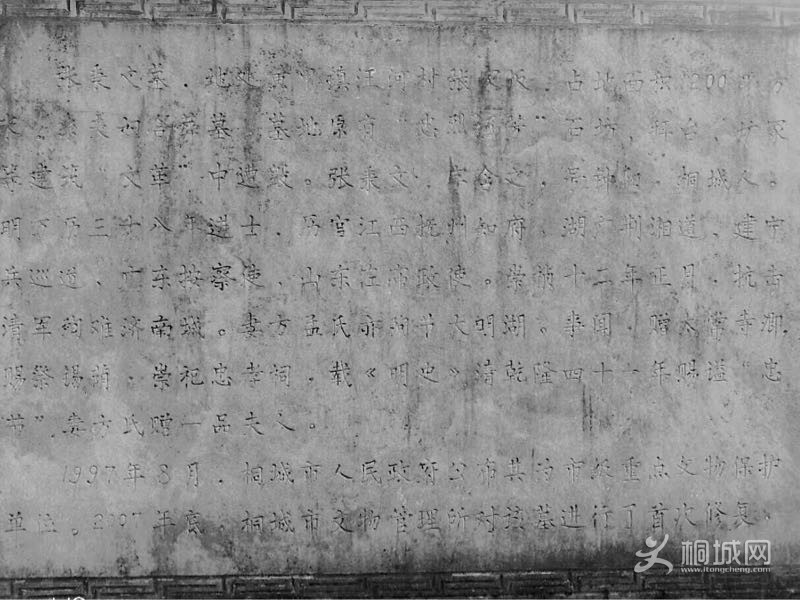 张秉文墓,地处其中镇江河村张家坂,占地面积1200平方
米,夫妻和合葬墓,墓地原有“忠烈”石坊,拜台,
等建筑“文革”中遭毁。张秉文,字含之,号,桐城人。
明万历三十八年进士,历官江西抚州知府,湖广荆湘道、建宁
兵巡道、广东按察使、山东左布政使。崇祯十二年正月,抗击
清军殉难济南城。妻方孟氏亦殉于大明湖。事闻,赠太常寺卿,
赐祭赐荫,崇祀忠孝祠,载《明史》清乾隆四十一年赐谥“忠
节”妻方氏赠一品夫人。
1997年8月,桐城市人民政府公布其为市级重点文物保护
单位。2007年底,桐城市文物管理所对该墓进行了首次修复。
桐城网
www.itongcheng.com